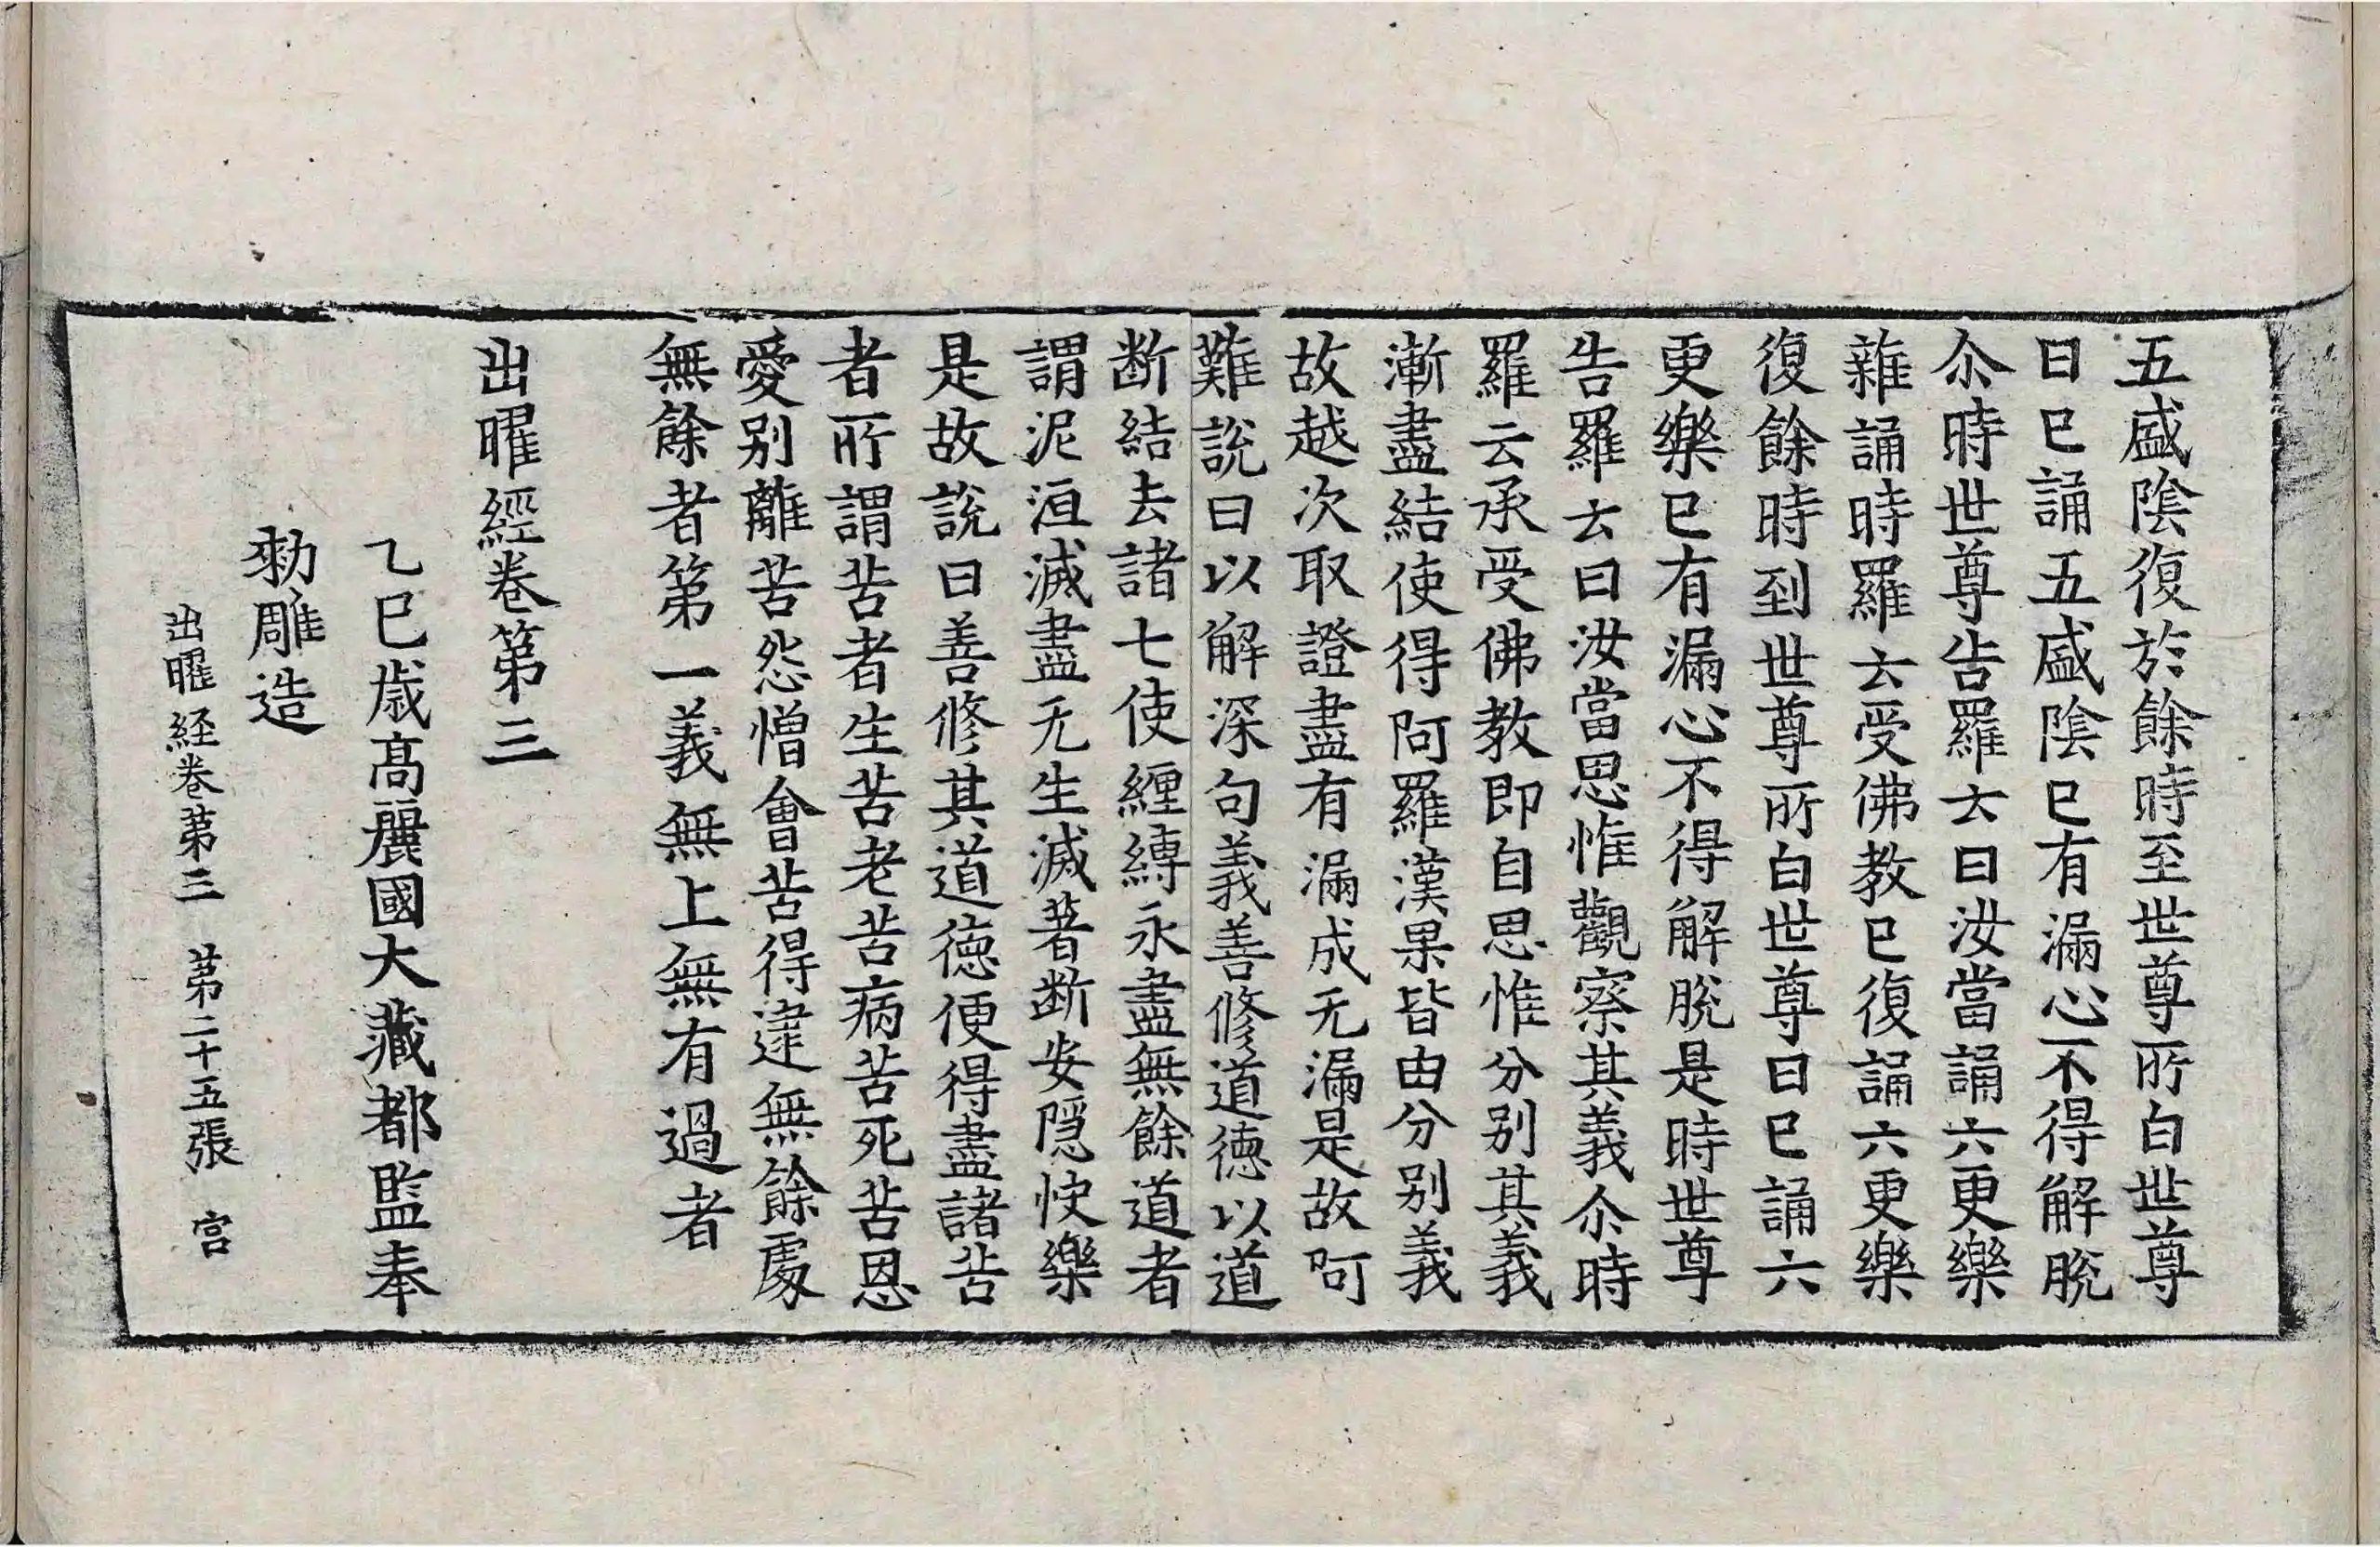 五盛陰復於餘時至世尊所白世尊
曰已誦五盛陰已有漏心不得解脫
尒時世尊告羅云曰汝當誦六更樂
雜誦時羅云受佛教已復誦六更樂
復餘時到世尊所白世尊曰已誦六
更樂已有漏心不得解脫是時世尊
告羅云曰汝當思惟觀察其義尒時
羅云承受佛教即自思惟分別其義
漸盡結使得阿羅漢果皆由分別義
故越次取證盡有漏成无漏是故阿
難說曰以解深句義善修道德以道
断結去諸七使纏縛永盡無餘道者
謂泥洹滅盡无生滅著断安隱快樂
是故說曰善修其道德便得盡諸苦
者所謂苦者生苦老苦病苦死苦恩
愛别離苦怨憎會苦得違無餘處
無餘者第一義無上無有過者
出曜經卷第三
乙巳歲高麗國大藏都監奉
勑雕造
出曜経卷第三　第二十五張　宫